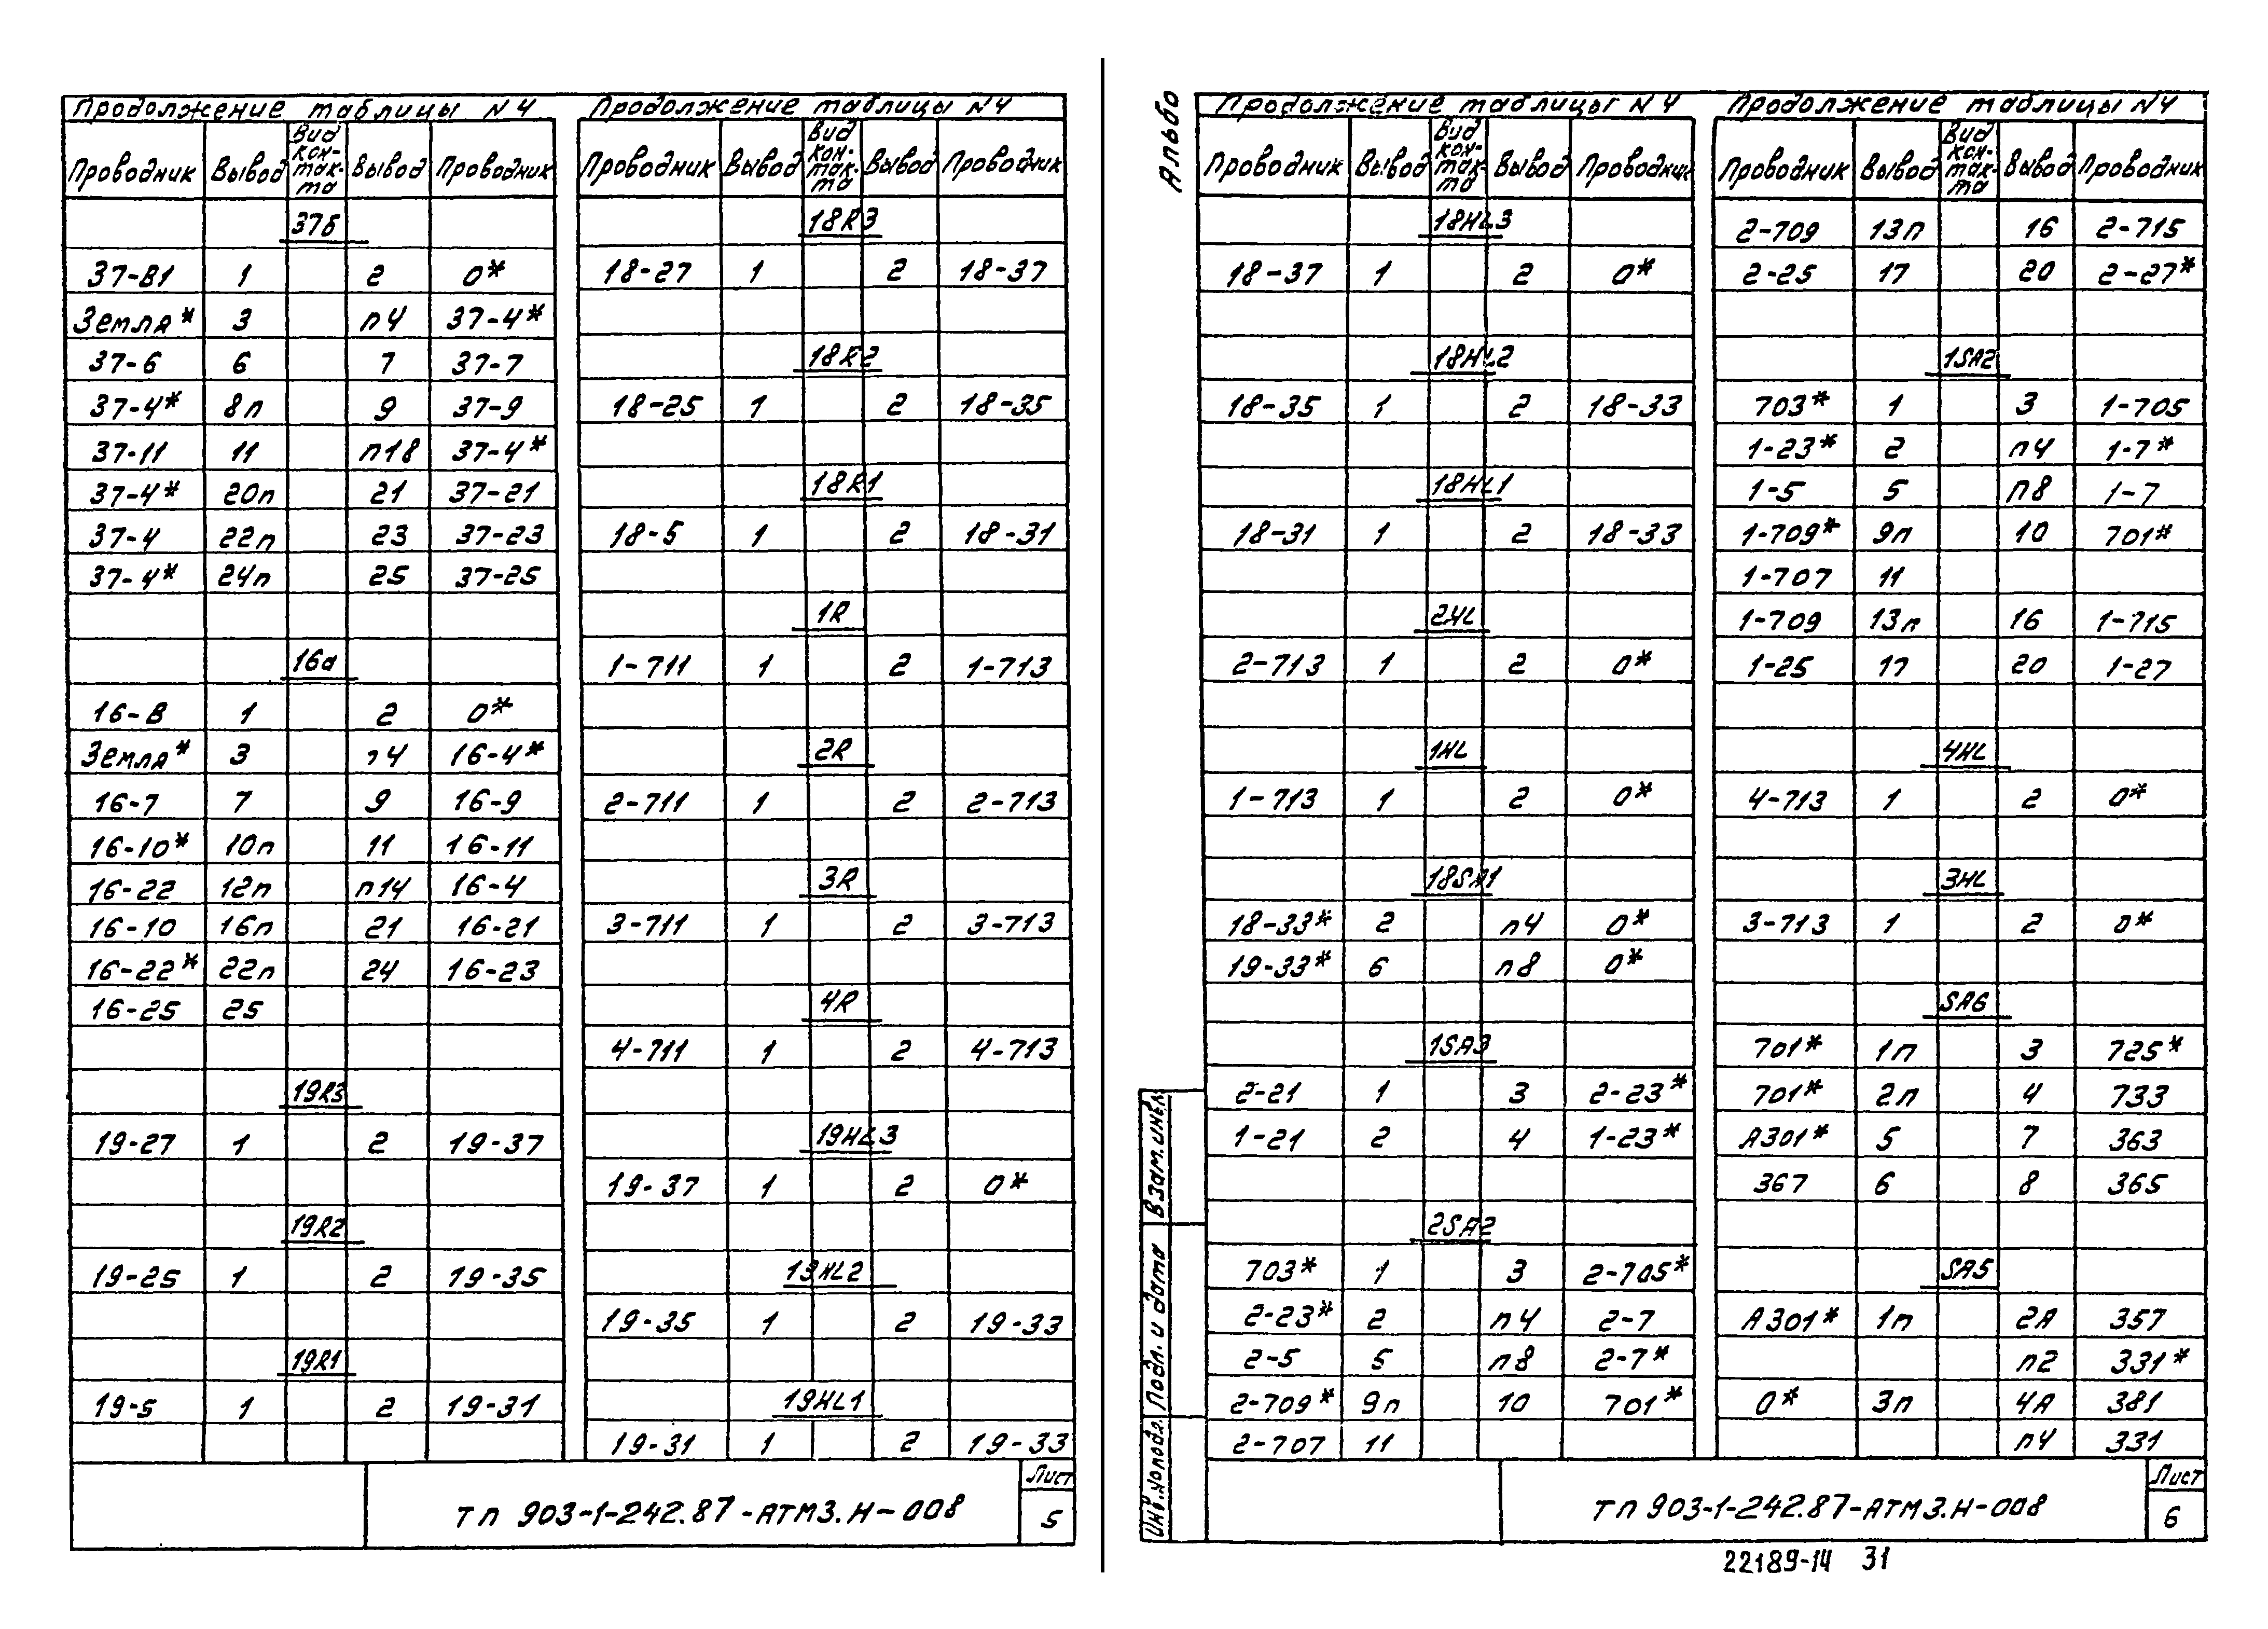 Продолжение таблицы N4
Проводник Вывод Вид кон-так-та Вывод Проводник
37б
37-В1 1 2 0*
Земля* 3 п4 37-4*
37-6 6 7 37-7
37-4* 8п 9 37-9
37-11 11 п18 37-4*
37-4* 20п 21 37-21
37-4 22п 23 37-23
37-4* 24п 25 37-25
16а
16-В 1 2 0*
Земля* 3 п4 16-4*
16-7 7 9 16-9
16-10* 10п 11 16-11
16-22 12п п14 16-4
16-10 16п 21 16-21
16-22* 22п 24 16-23
16-25 25
19R3
19-27 1 2 19-37
19R2
19-25 1 2 19-35
19R1
19-5 1 2 19-31
Продолжение таблицы N4
Проводник Вывод Вид кон-так-та Вывод Проводник
18R3
18-27 1 2 18-37
18R2
18-25 1 2 18-35
18R1
18-5 1 2 18-31
1R
1-711 1 2 1-713
2R
2-711 1 2 2-713
3R
3-711 1 2 3-713
4R
4-711 1 2 4-713
19HL3
19-37 1 2 0*
19HL2
19-35 1 2 19-33
19HL1
19-31 1 2 19-33
ТП 903-1-242.87-АТМ3.Н-008
Лист
5
Альбо
Продолжение таблицы N4
Проводник Вывод Вид кон-так-та Вывод Проводник
18HL3
18-37 1 2 0*
18HL2
18-35 1 2 18-33
18HL1
18-31 1 2 18-33
2HL
2-713 1 2 0*
1HL
1-713 1 2 0*
18SA1
18-33* 2 п4 0*
19-33* 6 п8 0*
1SA3
2-21 1 3 2-23*
1-21 2 4 1-23*
2SA2
703* 1 3 2-705*
2-23* 2 п4 2-7
2-5 5 п8 2-7*
2-709* 9п 10 701*
2-707 11
Продолжение таблицы N4
Проводник Вывод Вид кон-так-та Вывод Проводник
2-709 13п 16 2-715
2-25 17 20 2-27*
1SA2
703* 1 3 1-705
1-23* 2 п4 1-7*
1-5 5 п8 1-7
1-709* 9п 10 701*
1-707 11
1-709 13п 16 1-715
1-25 17 20 1-27
4HL
4-713 1 2 0*
3HL
3-713 1 2 0*
SA6
701* 1п 3 725*
701* 2п 4 733
А301* 5 7 363
367 6 8 365
SA5
А301* 1п 2А 357
п2 331*
0* 3п 4А 381
п4 331
Взам.инв.№
Подп. и дата
Инв.№подл.
ТП 903-1-242.87-АТМ3.Н-008
Лист
6
22189-14 31